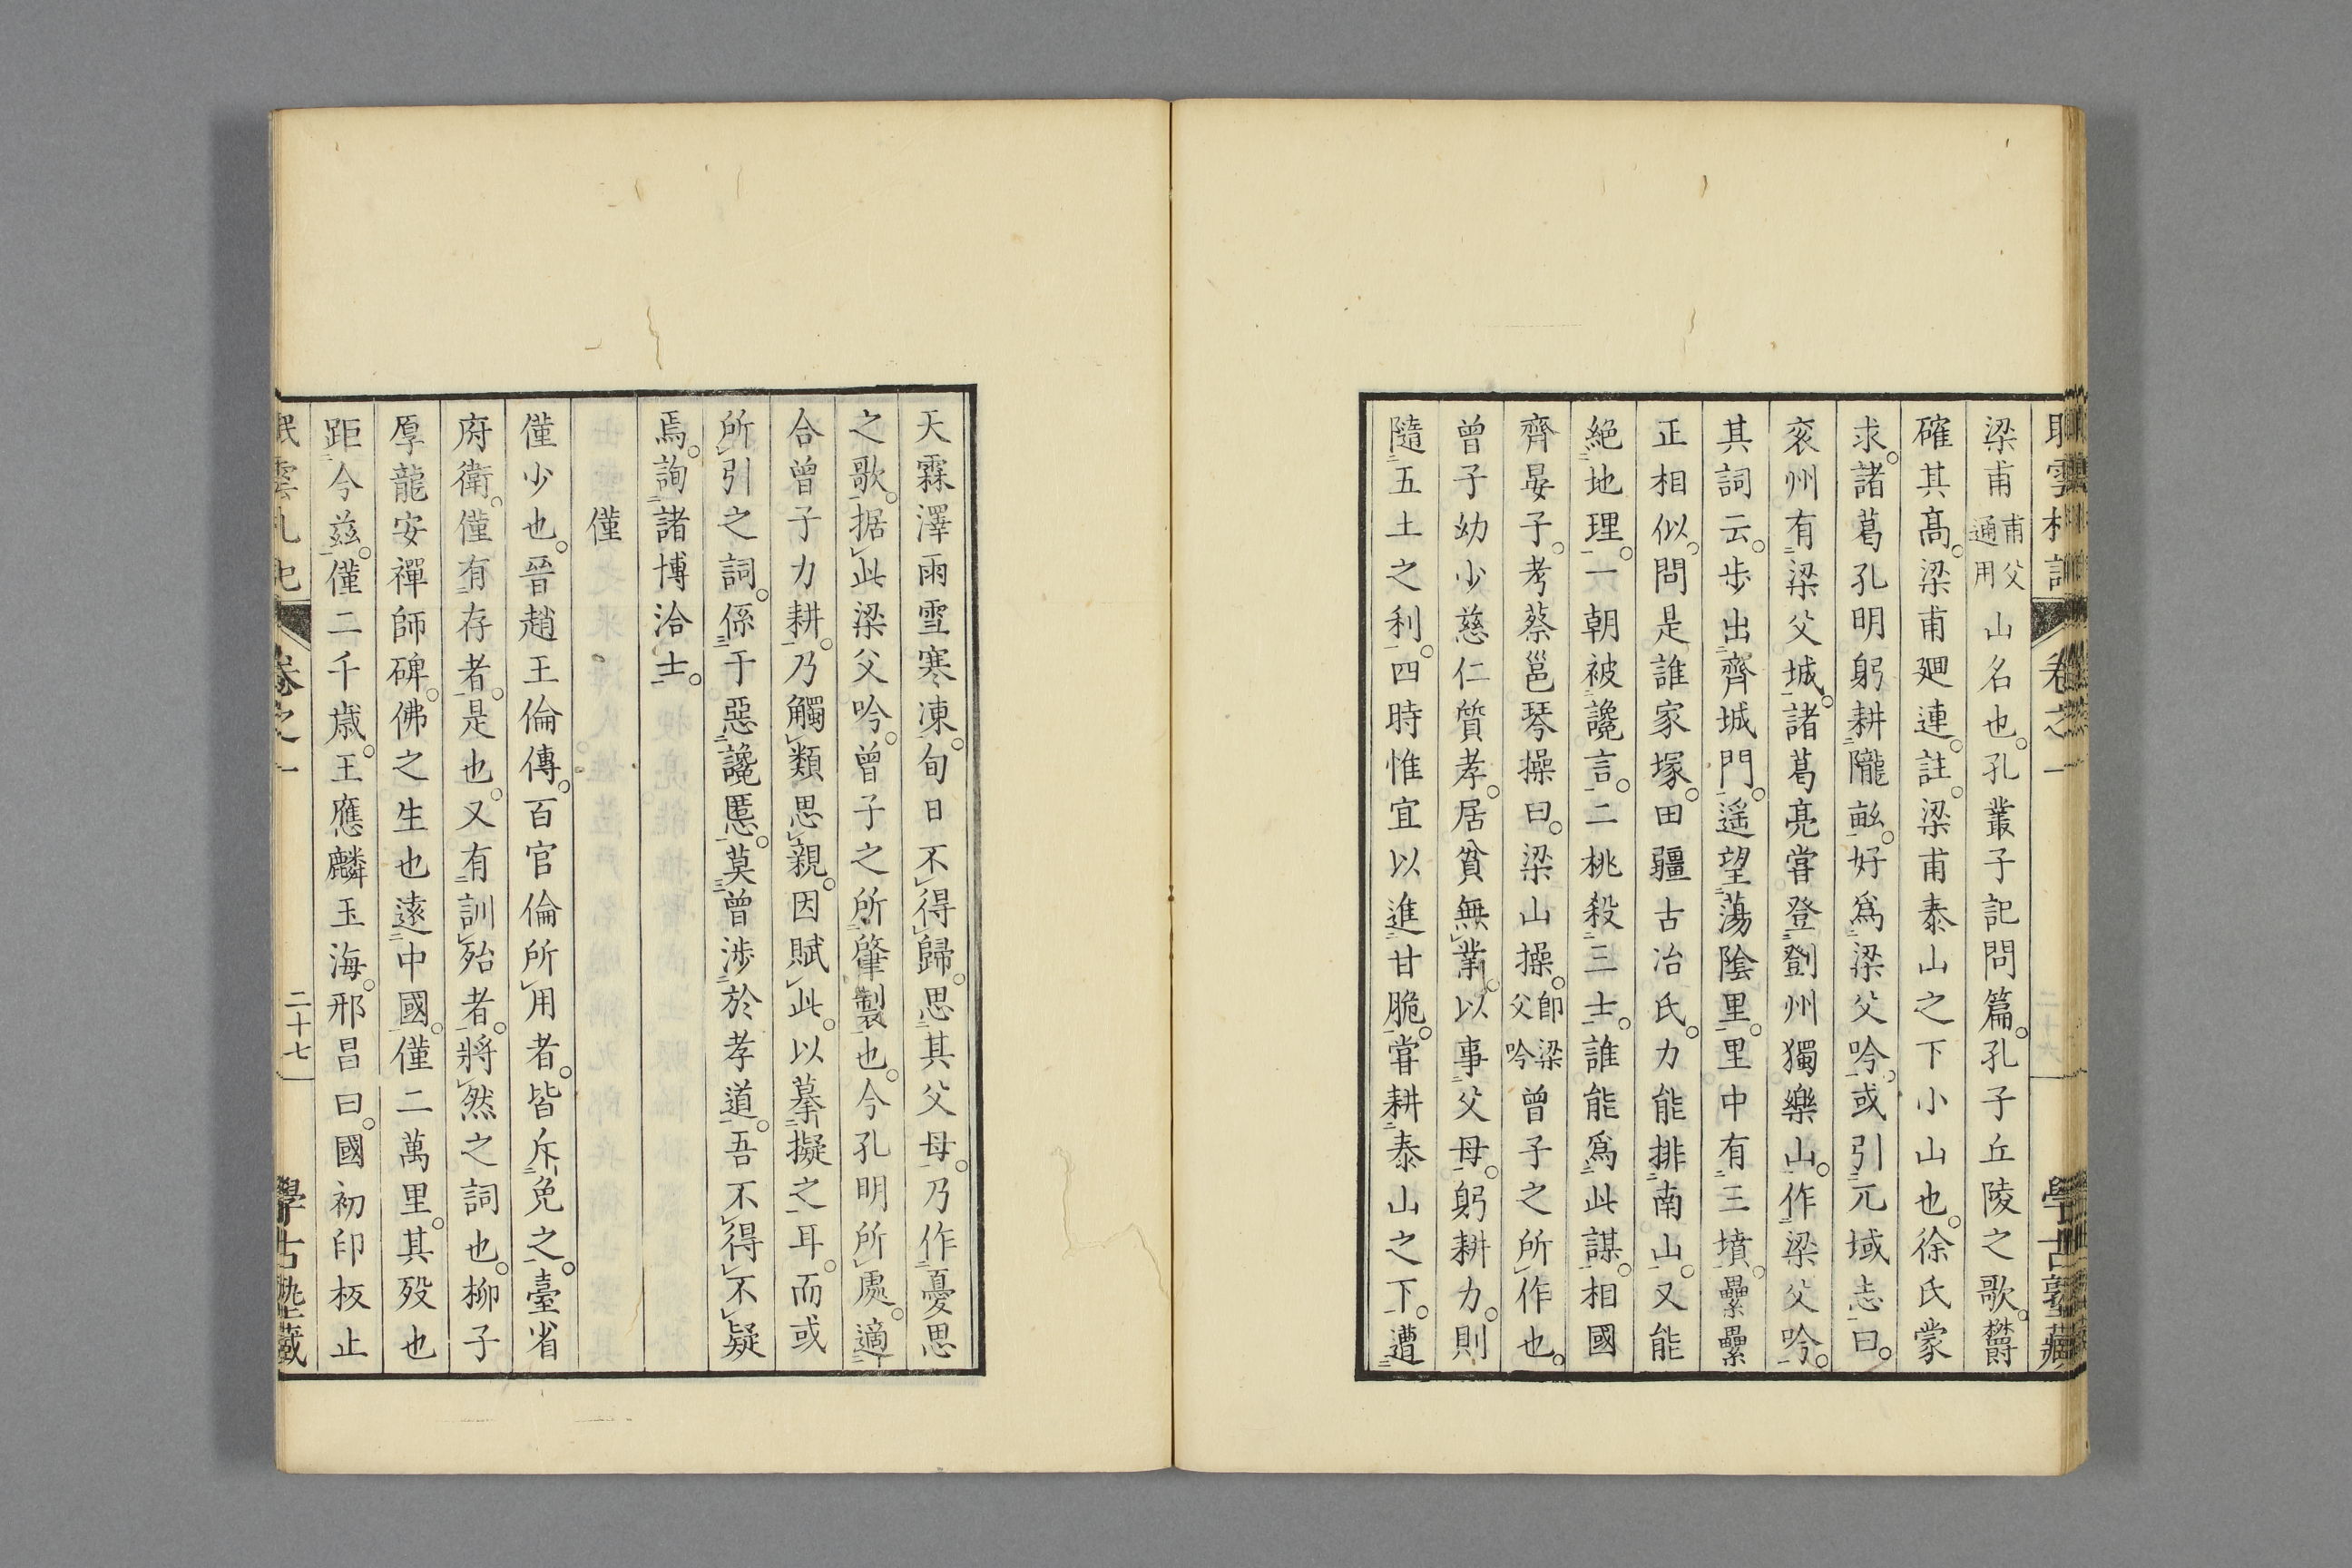 梁甫甫父通用山名也。孔叢子記問篇。孔子丘陵之歌。欝
確其髙。梁甫廻連。註。梁甫泰山之下小山也。徐氏蒙
求。諸葛孔明躬耕隴畝。好爲梁父吟。或引元域志曰。
兖州有梁父城。諸葛亮甞登劉州獨樂山。作梁父吟。
其詞云。歩出齊城門。遥望蕩陰里。里中有三墳。纍纍
正相似。問是誰家塚。田疆古冶氏。力能排南山。又能
絶地理。一朝被讒言。二桃殺三士。誰能爲此謀。相國
齊晏子。考蔡邕琴操曰。梁山操。卽梁父吟曾子之所作也。
曾子幼少慈仁質孝。居貧無業。以事父母。躬耕力。則
隨五土之利。四時惟宜以進甘脆。甞耕泰山之下。遭
天霖澤雨雪寒凍。旬日不得歸。思其父母。乃作憂思
之歌。据此梁父吟。曾子之所肇製也。今孔明所處。適
合曾子力耕。乃觸類思親。因賦此。以摹擬之耳。而或
所引之詞。係于惡讒慝。莫曾渉於孝道。吾不得不疑
焉。詢諸博洽士。
僅
僅少也。晉趙王倫傳。百官倫所用者。皆斥免之。臺省
府衛。僅有存者。是也。又有訓殆者。將然之詞也。柳子
厚龍安禪師碑。佛之生也遠中國。僅二萬里。其歿也
距今茲。僅二千歳。王應麟玉海。邢昌曰。國初印板止
卷之一
二十七